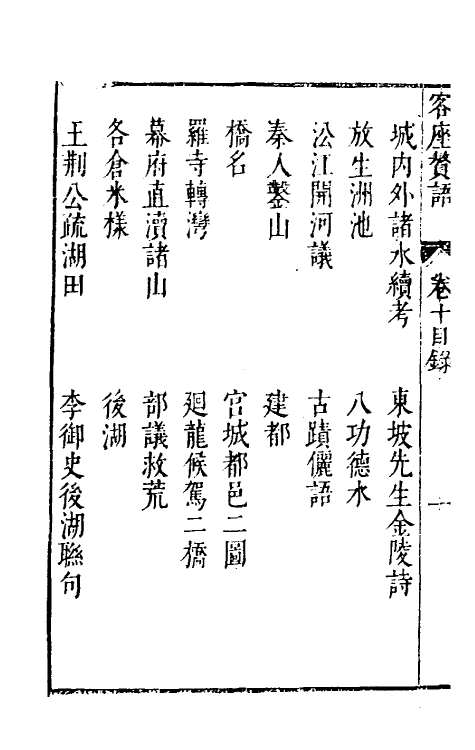 客座贅語 卷十目錄 一
城內外諸水續考 東坡先生金陵詩
放生洲池 八功德水
㳂江開河議 古蹟儷語
秦人鑿山 建都
橋名 宮城都邑二圖
羅寺轉灣 廻龍候駕二橋
幕府直瀆諸山 部議救荒
各倉米樣 後湖
王荆公疏湖田 李御史後湖聮句